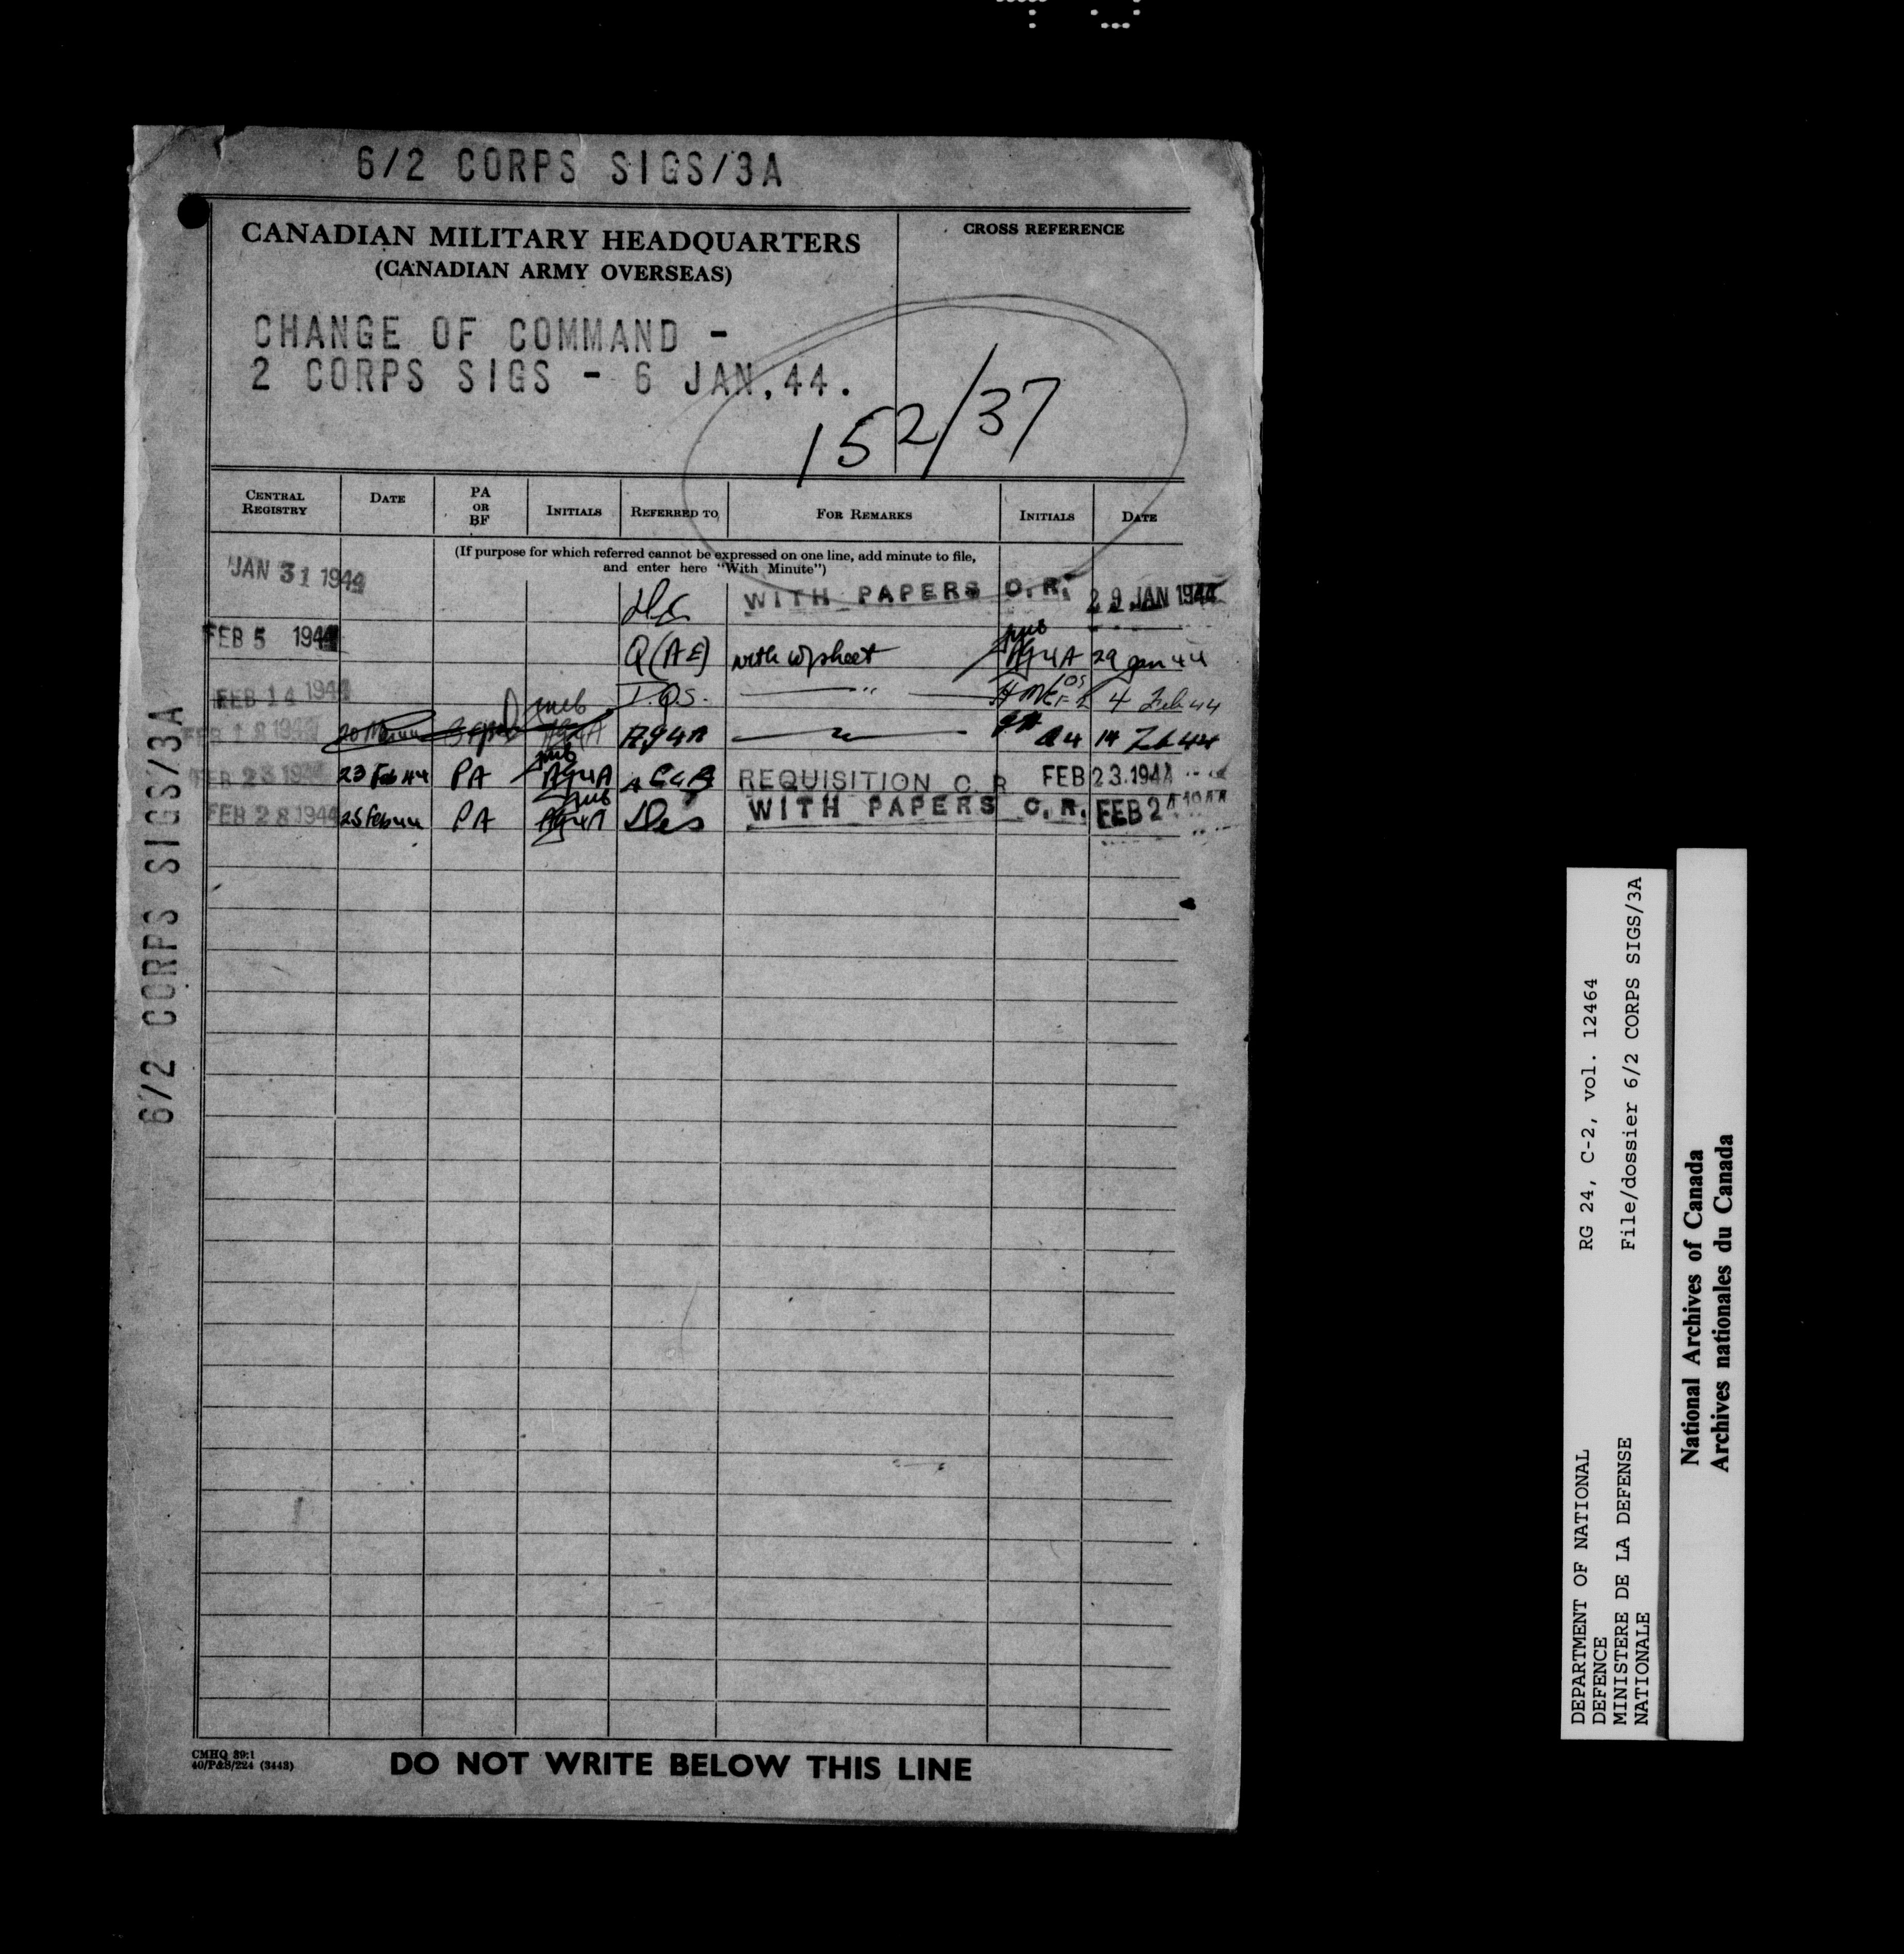 6/2 CORPS SIGS/3A
CANADIAN MILITARY HEADQUARTERS
(CANADIAN ARMY OVERSEAS)
CROSS REFERENCE
CHANGE OF COMMAND -
2 CORPS SIGS - 6 JAN,44.
152/37
CENTRAL REGISTRY DATE PA OR BF INITIALS REFERRED TO FOR REMARKS INITIALS DATE
(If purpose for which referred cannot be expressed on one line, add minute to file,
and enter here "With Minute")
JAN 31 1944 WITH PAPERS C.R. 29 JAN 1944
FEB 5 1944 Q(AE) with w/sheet AG4A 29 Jan 44
FEB 14 1944 D.O.S. " 4 Feb 44
FEB 18 1944 AG4A 14 Feb 44
FEB 23 1944 23 Feb 44 PA AG4A REQUISITION C.R FEB 23.1944
FEB 28 1944 25 Feb 44 PA AG4A WITH PAPERS C.R. FEB 24 1944
6/2 CORPS SIGS/3A
CMHQ 39:1
40/P&S/224 (3443)
DO NOT WRITE BELOW THIS LINE
DEPARTMENT OF NATIONAL
DEFENCE
MINISTERE DE LA DEFENSE
NATIONALE
RG 24, C-2, vol. 12464
File/dossier 6/2 CORPS SIGS/3A
National Archives of Canada
Archives nationales du Canada